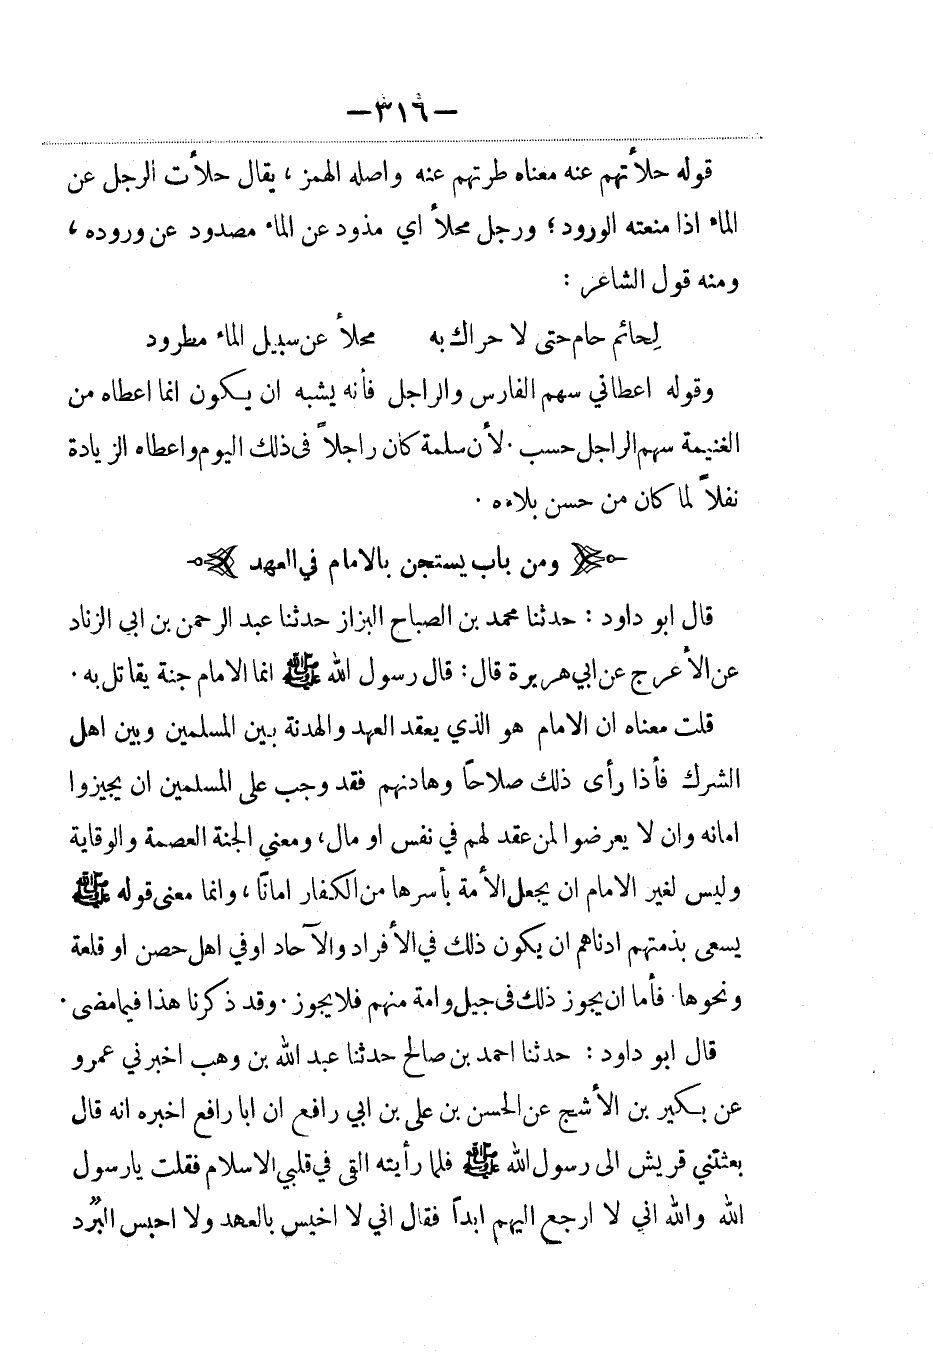 —٣١٦—
قوله حلأتهم عنه معناه طرتهم عنه واصله الهمز ، يقال حلأت الرجل عن
الماء اذا منعته الورود ؛ ورجل محلأ اي مذود عن الماء مصدود عن وروده ،
ومنه قول الشاعر :
لِحائم حام حتى لا حراك به محلأ عن سبيل الماء مطرود
وقوله اعطاني سهم الفارس والراجل فأنه يشبه ان يكون انما اعطاه من
الغنيمة سهم الراجل حسب . لأن سلمة كان راجلاً في ذلك اليوم واعطاه الزيادة
نفلاً لما كان من حسن بلاءه .
ومن باب يستجن بالامام في العهد
قال ابو داود : حدثنا محمد بن الصباح البزاز حدثنا عبد الرحمن بن ابي الزناد
عن الأعرج عن ابي هريرة قال : قال رسول الله ﷺ انما الامام جنة يقاتل به .
قلت معناه ان الامام هو الذي يعقد العهد والهدنة بين المسلمين وبين اهل
الشرك فأذا رأى ذلك صلاحاً وهادنهم فقد وجب على المسلمين ان يجيزوا
امانه وان لا يعرضوا لمن عقد لهم في نفس او مال ، ومعنى الجنة العصمة والوقاية
وليس لغير الامام ان يجعل الأمة بأسرها من الكفار امانًا ، وانما معنى قوله ﷺ
يسعى بذمتهم ادناهم ان يكون ذلك في الأفراد والآحاد او في اهل حصن او قلعة
ونحوها . فأما ان يجوز ذلك في جيل وامة منهم فلا يجوز . وقد ذكرنا هذا فيما مضى .
قال ابو داود : حدثنا احمد بن صالح حدثنا عبد الله بن وهب اخبرني عمرو
عن بكير بن الأشج عن الحسن بن علي بن ابي رافع ان ابا رافع اخبره انه قال
بعثتني قريش الى رسول الله ﷺ فلما رأيته القى في قلبي الاسلام فقلت يارسول
الله والله اني لا ارجع اليهم ابداً فقال اني لا اخيس بالعهد ولا احبس البُرُد